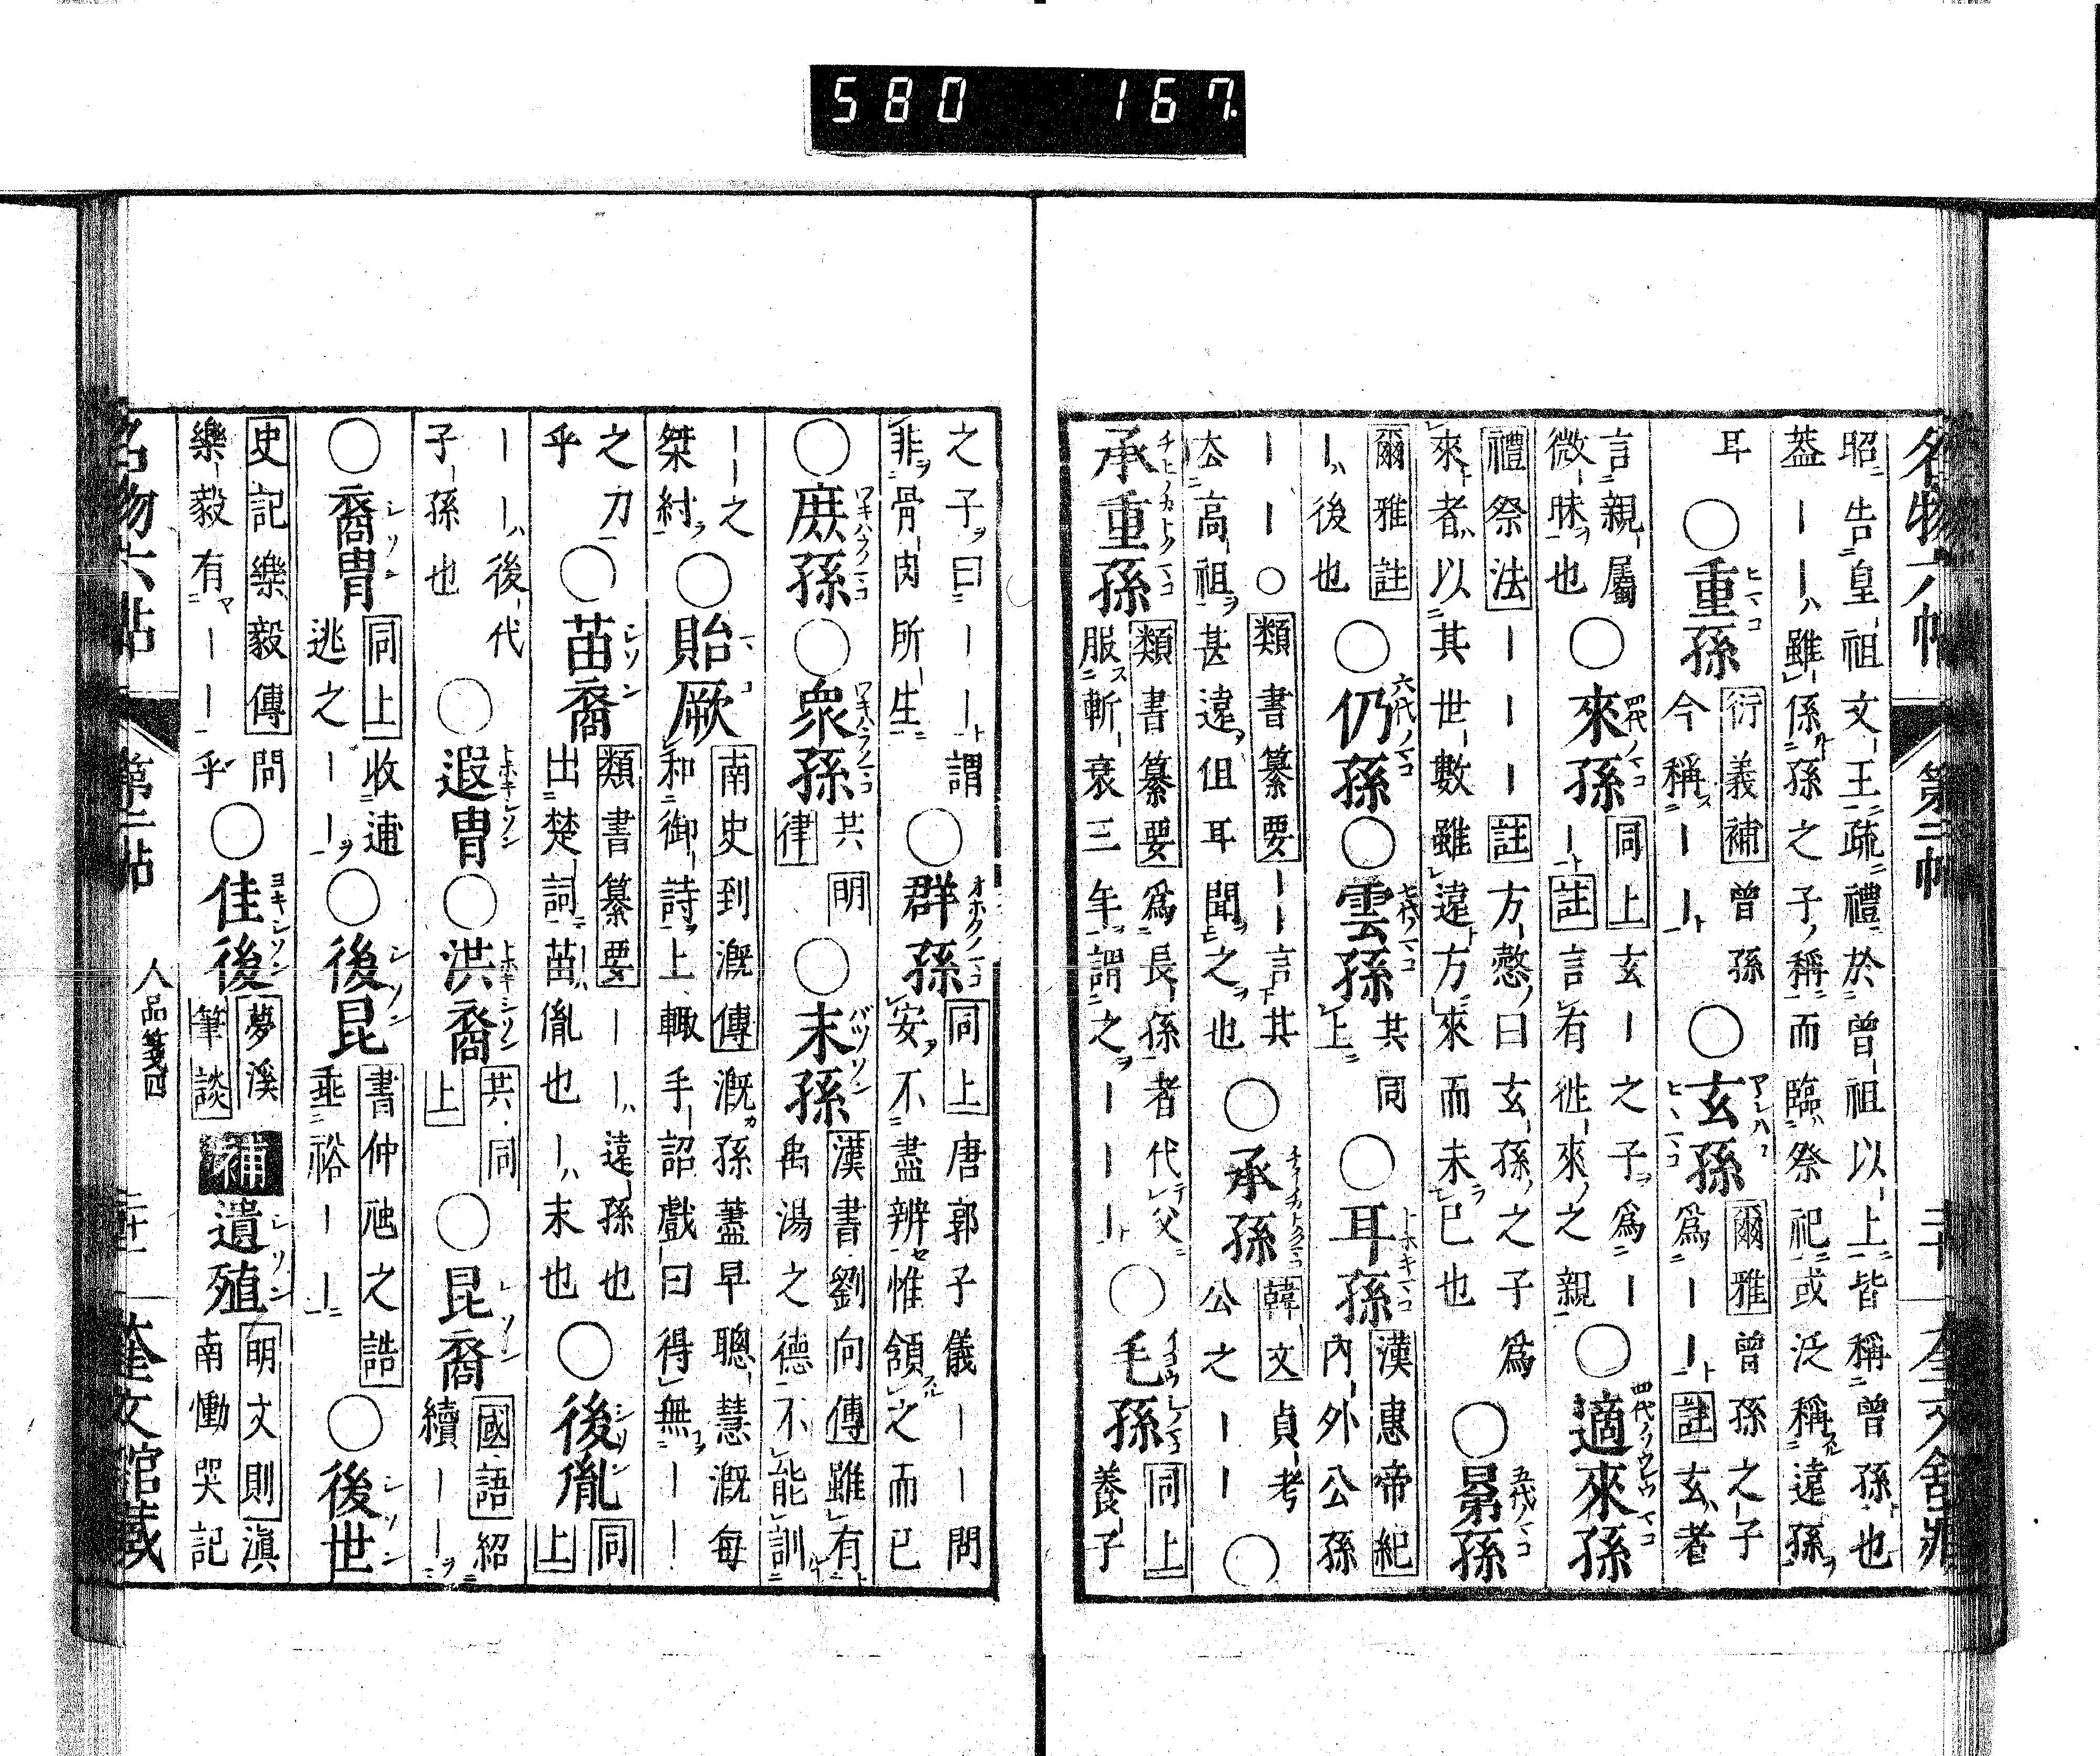 580 167
名物六帖 第二帖
昭告皇祖文王疏禮於曾祖以上皆稱曾孫也
葢ーーハ雖係孫之子ノ稱而臨祭祀或泛稱遠孫
耳
○重孫
衍義補 曾孫
今稱ーー
○玄孫
爾雅 曾孫之子
爲ーー 註 玄者
言親屬
微昧也
○來孫
同上 玄ー之子爲ー
ー 註 言有往來之親
○適來孫
禮祭法 ーーー 註 方慤曰玄孫之子爲
來者以其世數雖遠方來而未已也
○晜孫
爾雅註
ーハ後也
○仍孫
○雲孫
共同
上
○耳孫
漢惠帝紀
內外公孫
ーー○ 類書纂要 ーー言其
厺高祖甚遠但耳聞之也
○承孫
韓文 貞考
公之ーー
○
承重孫
類書纂要 爲長孫者代父
服斬衰三年謂之ーーー
○毛孫
同上
養子
之子曰ーー謂
非骨肉所生
○群孫
同上 唐郭子儀ーー問
安不盡辨惟頷之而已
○庶孫
○衆孫
共明
律
○末孫
漢書劉向傳 雖有
禹湯之德不能訓
ーー之
桀紂
○貽厥
南史到溉傳 溉孫藎早聰慧溉每
和御詩上輙手詔戲曰得無ーー
之力
乎
○苗裔
類書纂要 ーーハ遠孫也
出楚詞苗胤也ーハ末也
○後胤
同
上
ーーハ後代
子孫也
○遐冑
○洪裔
共同
上
○昆裔
國語 紹
續ーー
○裔冑
同上 收逋
逃之ーー
○後昆
書仲虺之誥
垂裕ーー
○後世
史記樂毅傳 問
樂毅有ーー乎
○佳後
夢溪
筆談
補
遺殖
明文則 滇
南慟哭記
名物六帖 第二帖 人品箋四 二十一 奎文館藏